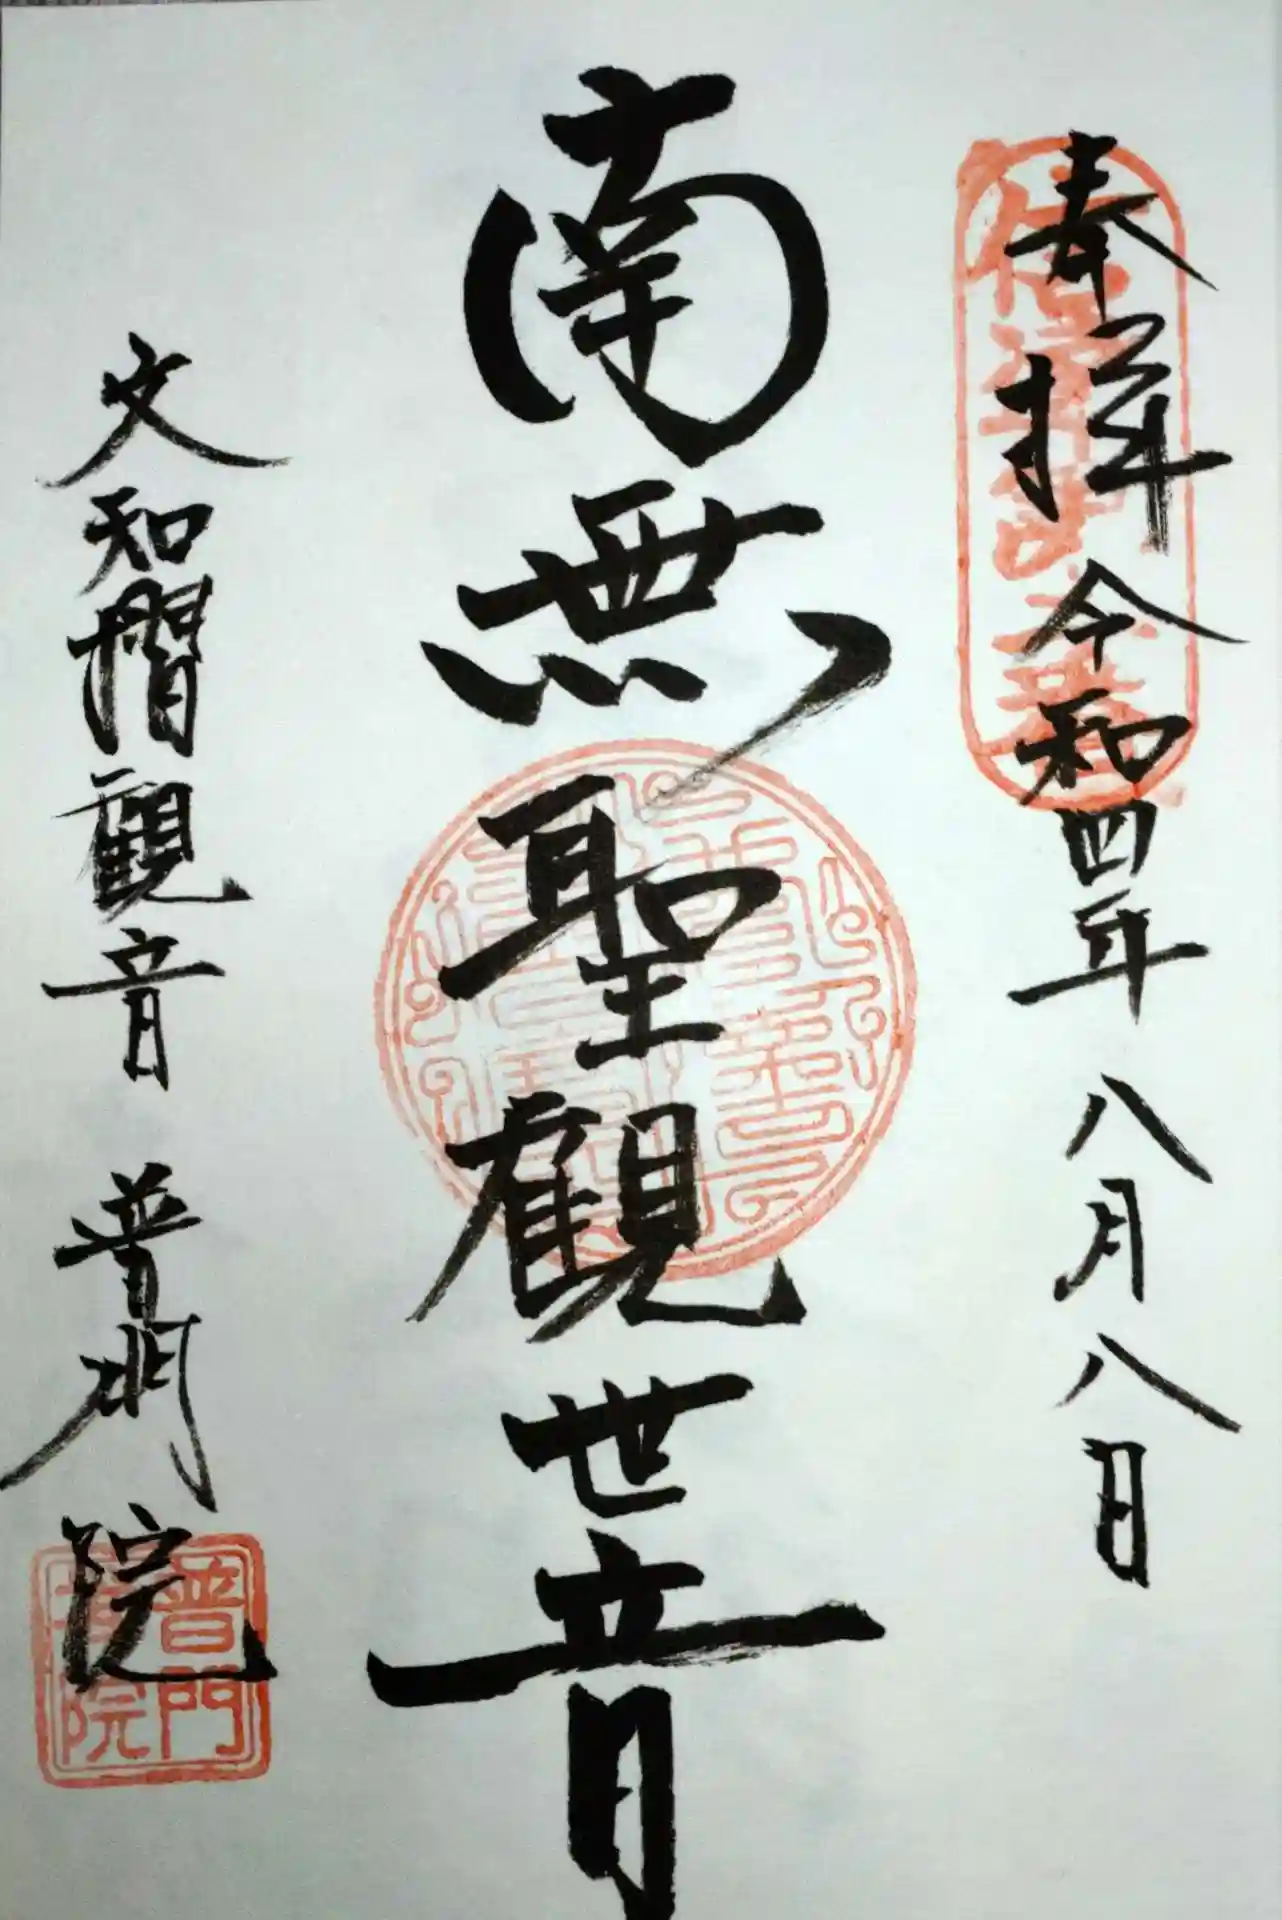 奉拝 令和四年八月八日
南無聖觀世音
文知摺觀音 普門院
普門
院